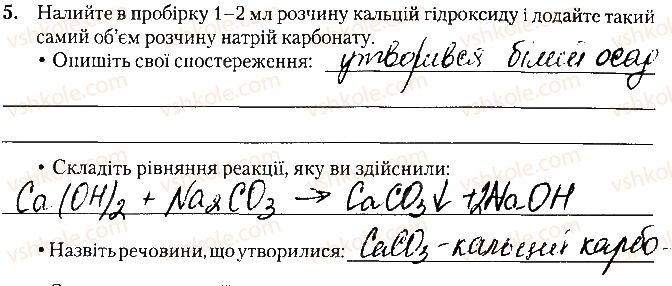 5. Налийте в пробірку 1–2 мл розчину кальцій гідроксиду і додайте такий
самий об'єм розчину натрій карбонату.
• Опишіть свої спостереження: утворився білий осад
• Складіть рівняння реакції, яку ви здійснили:
Ca(OH)2 + Na2CO3 → CaCO3↓ + 2NaOH
• Назвіть речовини, що утворилися: CaCO3 - кальцій карбо-